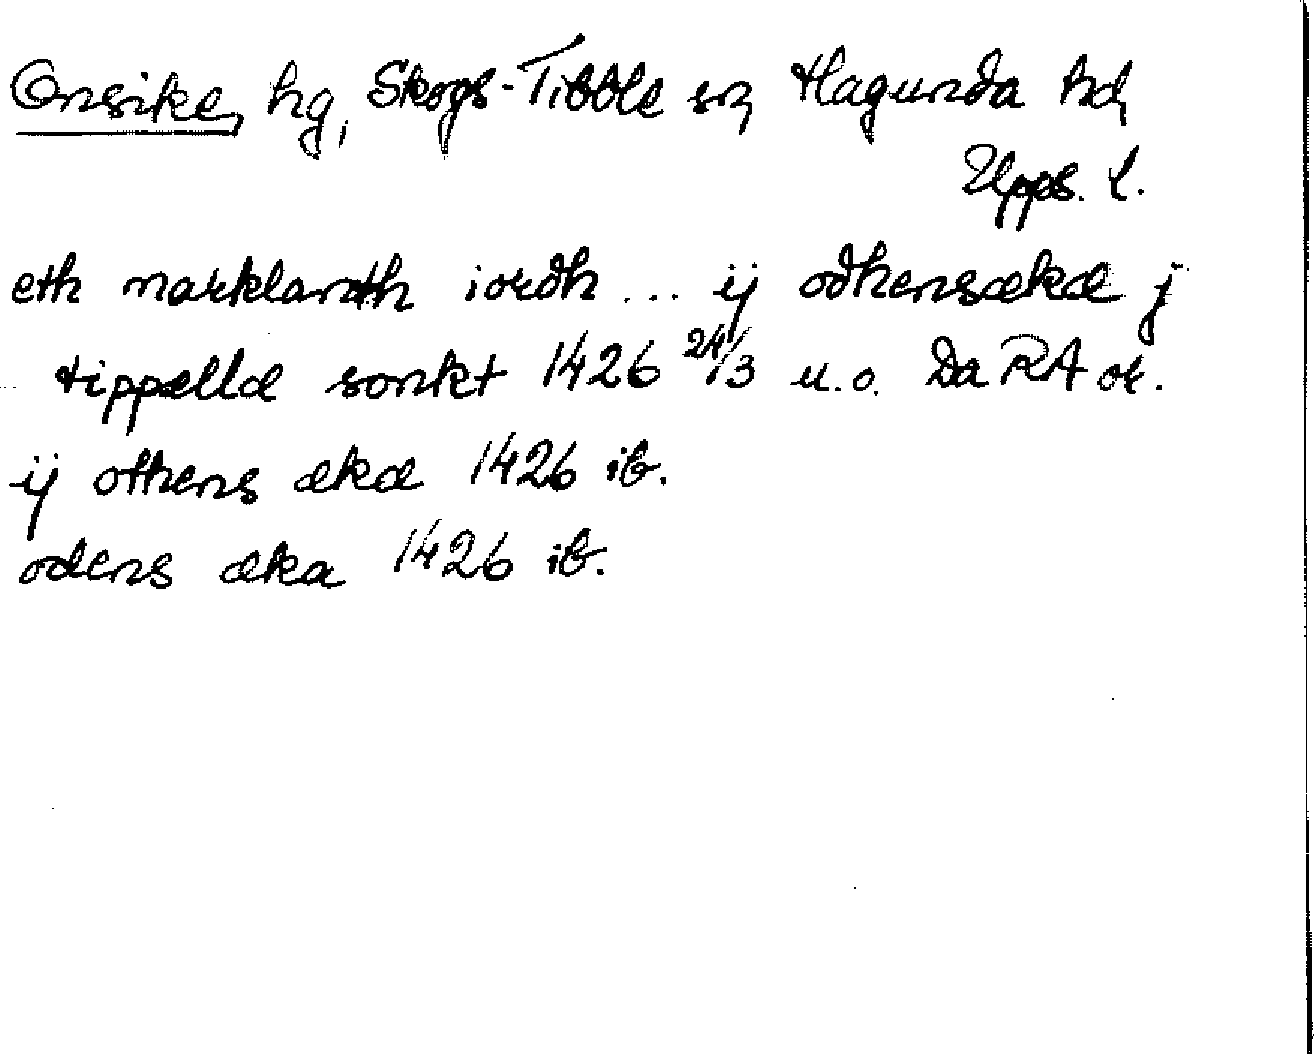 Onsike, hg, Skogs-Tibble sn, Hagunda hd,
Upps. l.
eth marklandh iordh ... ij odhensækæ j
tippællæ sonkt 1426 24/3 u.o. Da RA or.
ij othens ækæ 1426 ib.
odens æka 1426 ib.